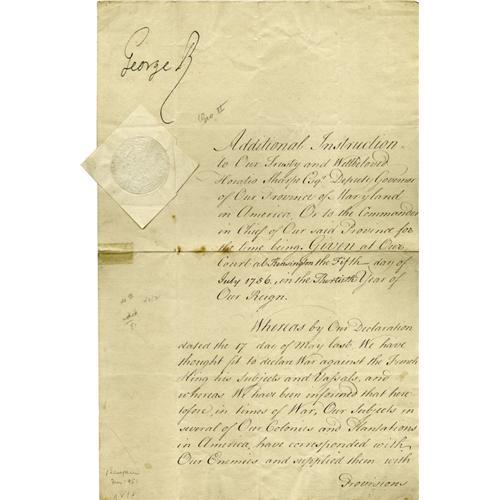 George R
Geo. II
Additional Instruction
to Our Trusty and Wellbeloved
Horatio Sharpe Esqr. Deputy Governor
of Our Province of Maryland
in America, Or to the Commander
in Chief of Our said Province for
the time being. Given at Our
Court at Kensington the Fifth day of
July 1756, in the Thirtieth Year of
Our Reign.
Whereas by Our Declaration
dated the 17 day of May last We have
thought fit to declare War against the French
King his Subjects and Vassals, and
whereas We have been informed that here
tofore, in times of War, Our Subjects in
several of Our Colonies and Plantations
in America, have corresponded with
Our Enemies and supplied them with
Provisions